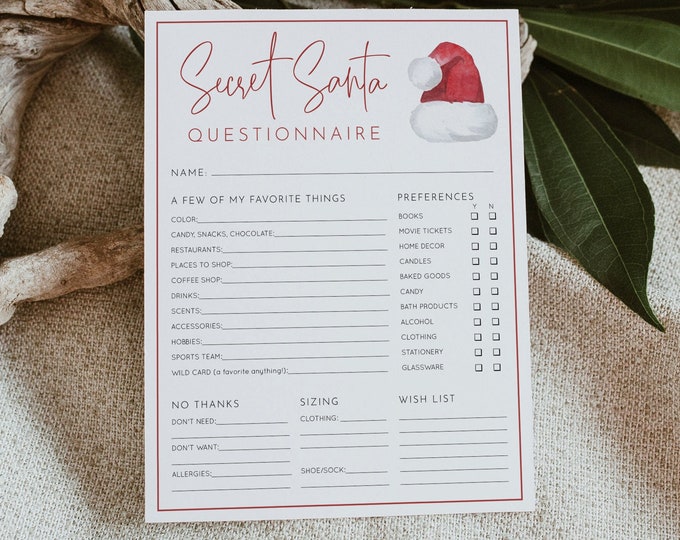 Secret Santa
QUESTIONNAIRE
NAME:
A FEW OF MY FAVORITE THINGS
COLOR:
CANDY, SNACKS, CHOCOLATE:
RESTAURANTS:
PLACES TO SHOP:
COFFEE SHOP:
DRINKS:
SCENTS:
ACCESSORIES:
HOBBIES:
SPORTS TEAM:
WILD CARD (a favorite anything!):
PREFERENCES
Y N
BOOKS
MOVIE TICKETS
HOME DECOR
CANDLES
BAKED GOODS
CANDY
BATH PRODUCTS
ALCOHOL
CLOTHING
STATIONERY
GLASSWARE
NO THANKS
DON'T NEED:
DON'T WANT:
ALLERGIES:
SIZING
CLOTHING:
SHOE/SOCK:
WISH LIST